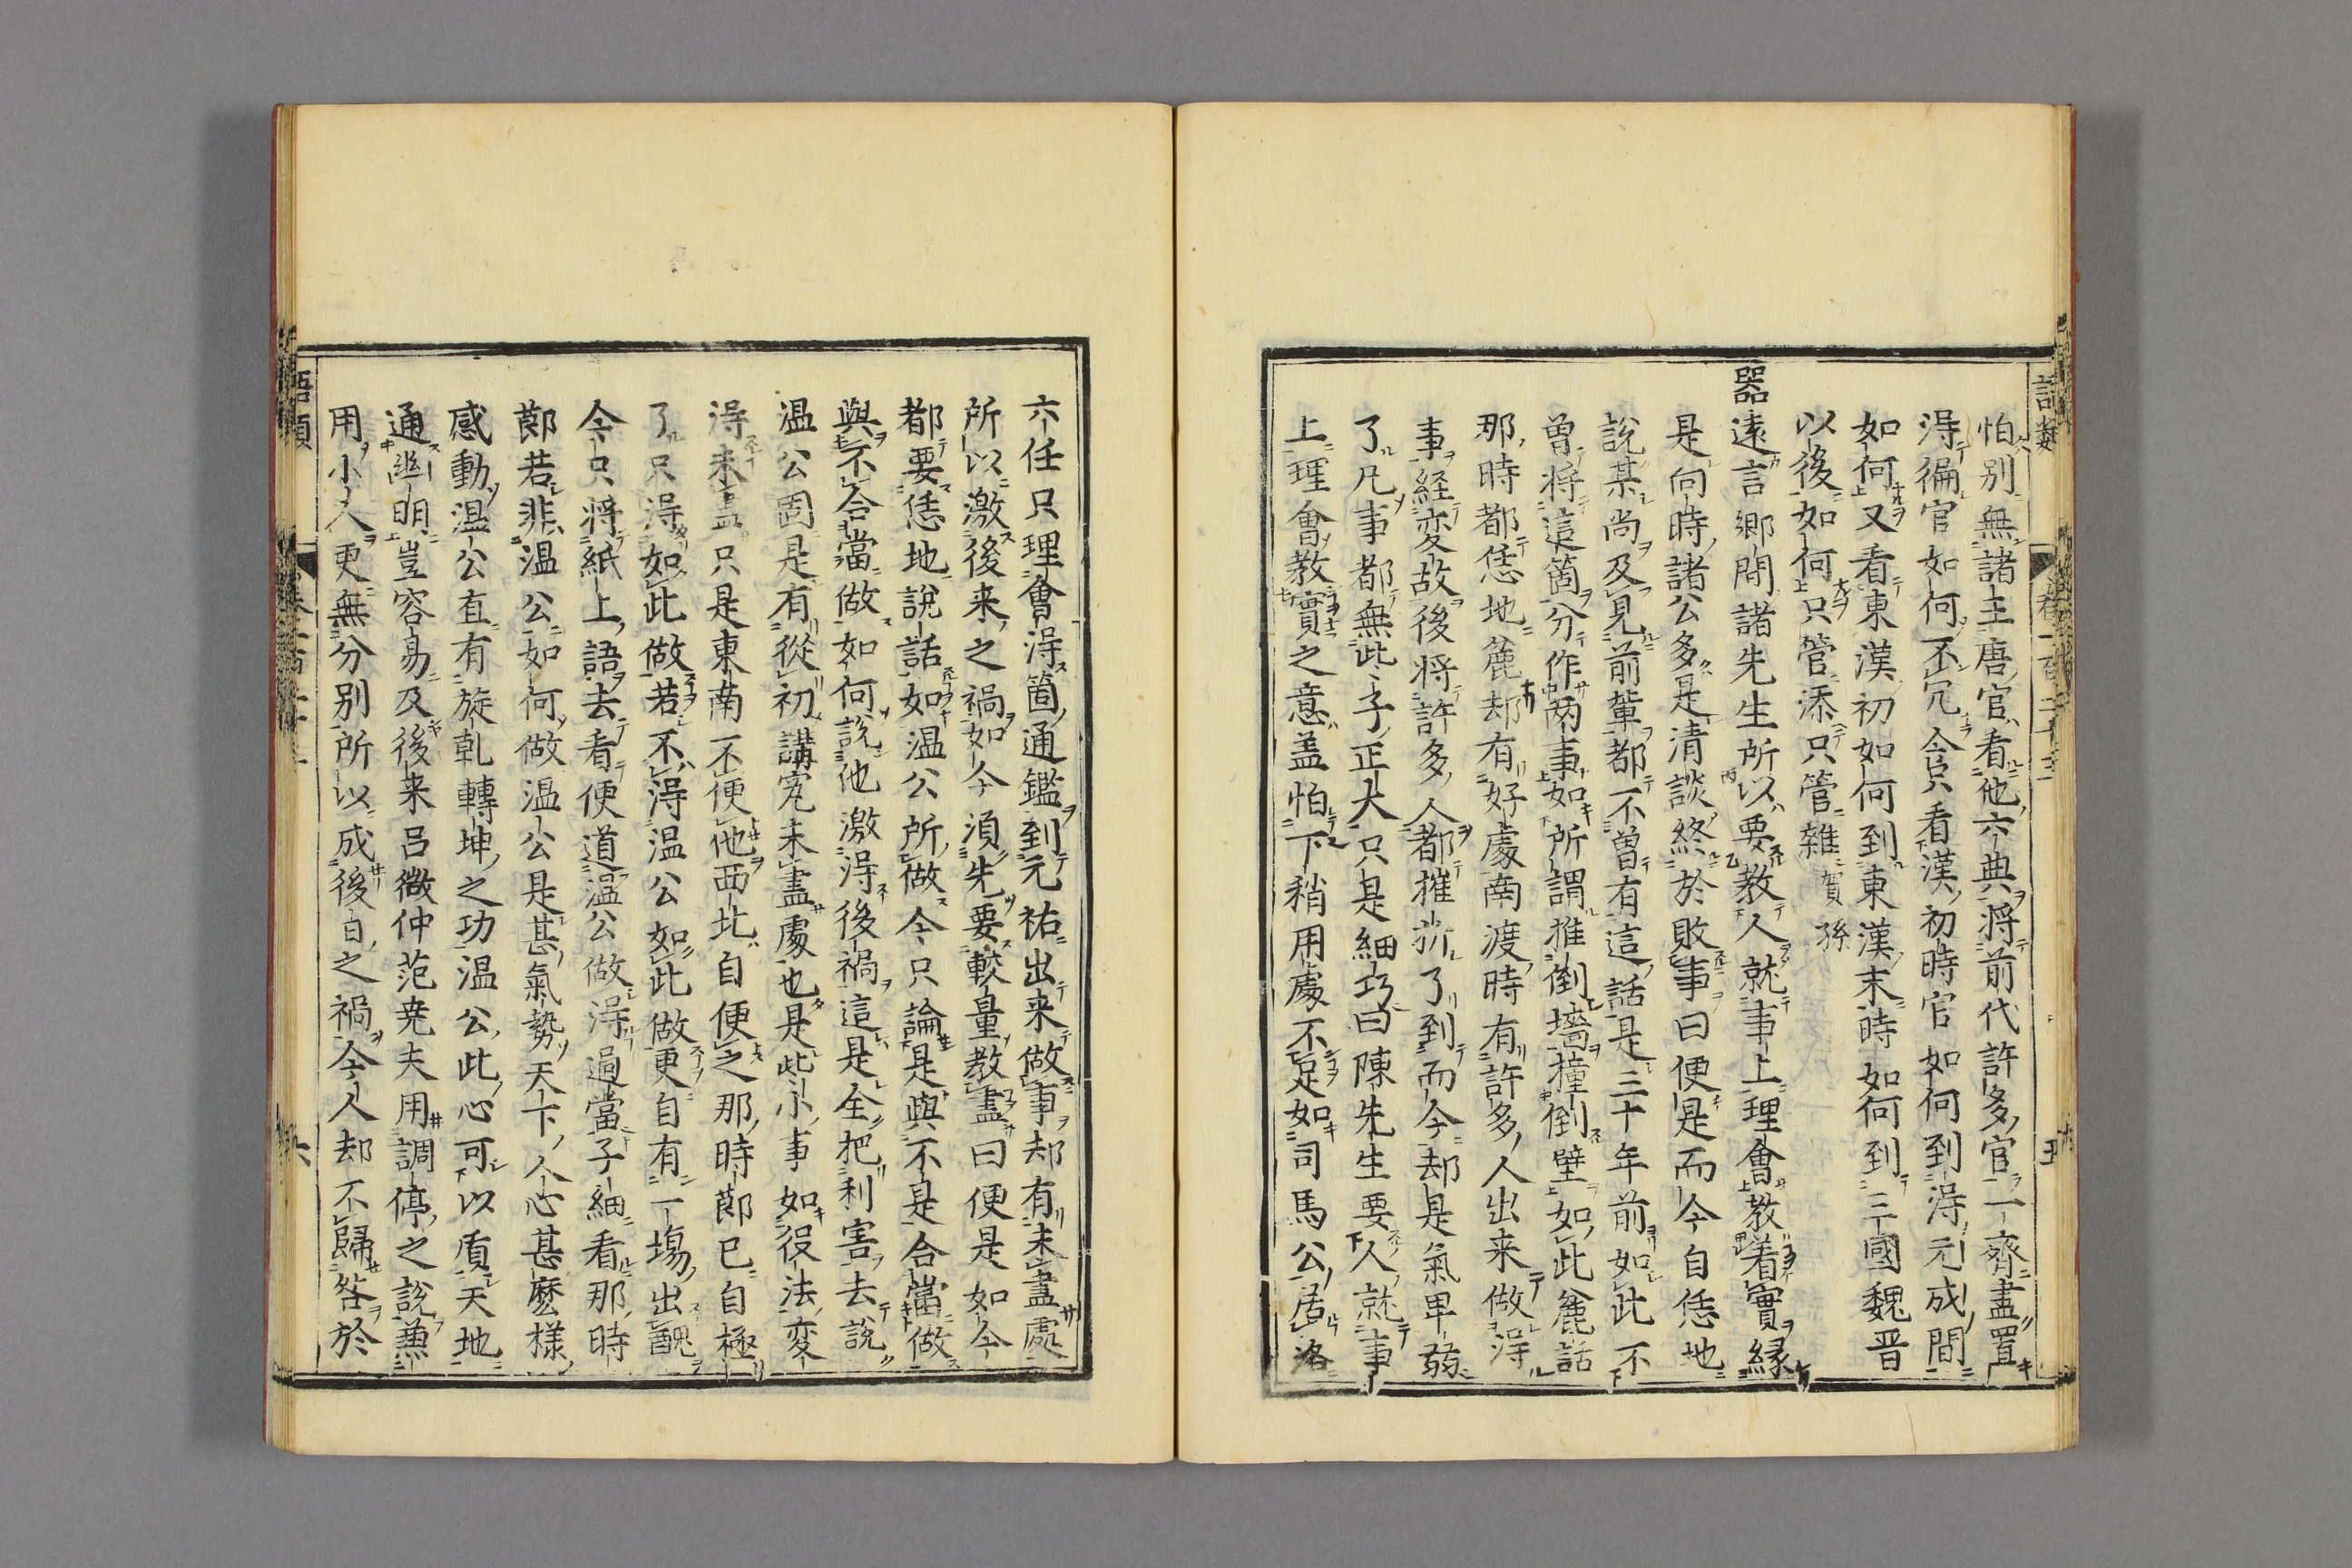 怕別無諸主唐官看他六典將前代許多官一齊盡置
得徧官如何不冗今只看漢初時官如何到得元成間
如何又看東漢初如何到東漢末時如何到三國魏晋
以後如何只管添只管雜賀孫
器遠言郷間諸先生所以要教人就事上理會教着實縁
是向時諸公多是清談終於敗事曰便是而今自恁地
説某尚及見前輩都不曽有這話是三十年前如此不
曽將這箇分作両事如所謂推倒墻撞倒壁如此麄話
那時都恁地麄却有好處南渡時有許多人出来做得
事経変故後将許多人都摧折了到而今却是氣卑弱
了凡事都無此子正大只是細巧曰陳先生要人就事
上理會教實之意盖怕下稍用處不足如司馬公居洛
六任只理會得箇通鑑到元祐出来做事却有未盡處
所以激後来之禍如今須先要較量教盡曰便是如今
都要恁地說話如温公所做今只論是與不是合當做
與不合當做如何說他激得後禍這是全把利害去說
温公固是有從初講究未盡處也是些小事如役法変
得未盡只是東南不便他西北自便之那時節已自極
了只得如此做若不得温公如此做更自有一場出醜
今只将紙上語去看便道温公做得過當子細看那時
節若非温公如何做温公是甚氣勢天下人心甚麽様
感動温公直有旋乹轉坤之功温公此心可以質天地
通幽明豈容易及後来吕微仲范尭夫用調停之說兼
用小人更無分別所以成後日之禍今人却不歸咎於